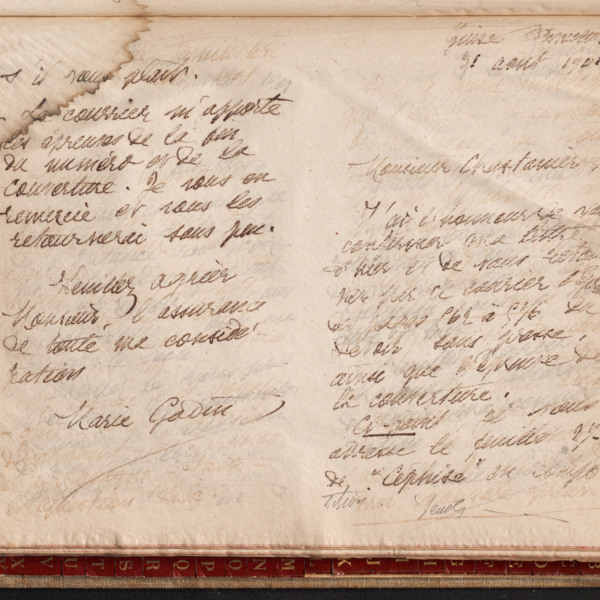 s'il vous plait.
Le courrier m'apporte
les épreuves de la fin
du numéro et de la
couverture. Je vous en
remercie et vous les
retournerai sous peu.
Veuillez agréer
Monsieur, l'assurance
de toute ma considé-
ration
Marie Godin
Guise
31 août
Monsieur Chastanier,
J'ai l'honneur de
confirmer ma lettre
d'hier et de vous
par ce courrier
les pages 562 à 576 du
Devoir sous presse,
ainsi que l'épreuve de
la couverture.
Ci-joint je vous
adresse la feuille
de "Céphise" en
M N O P Q R
T U V X